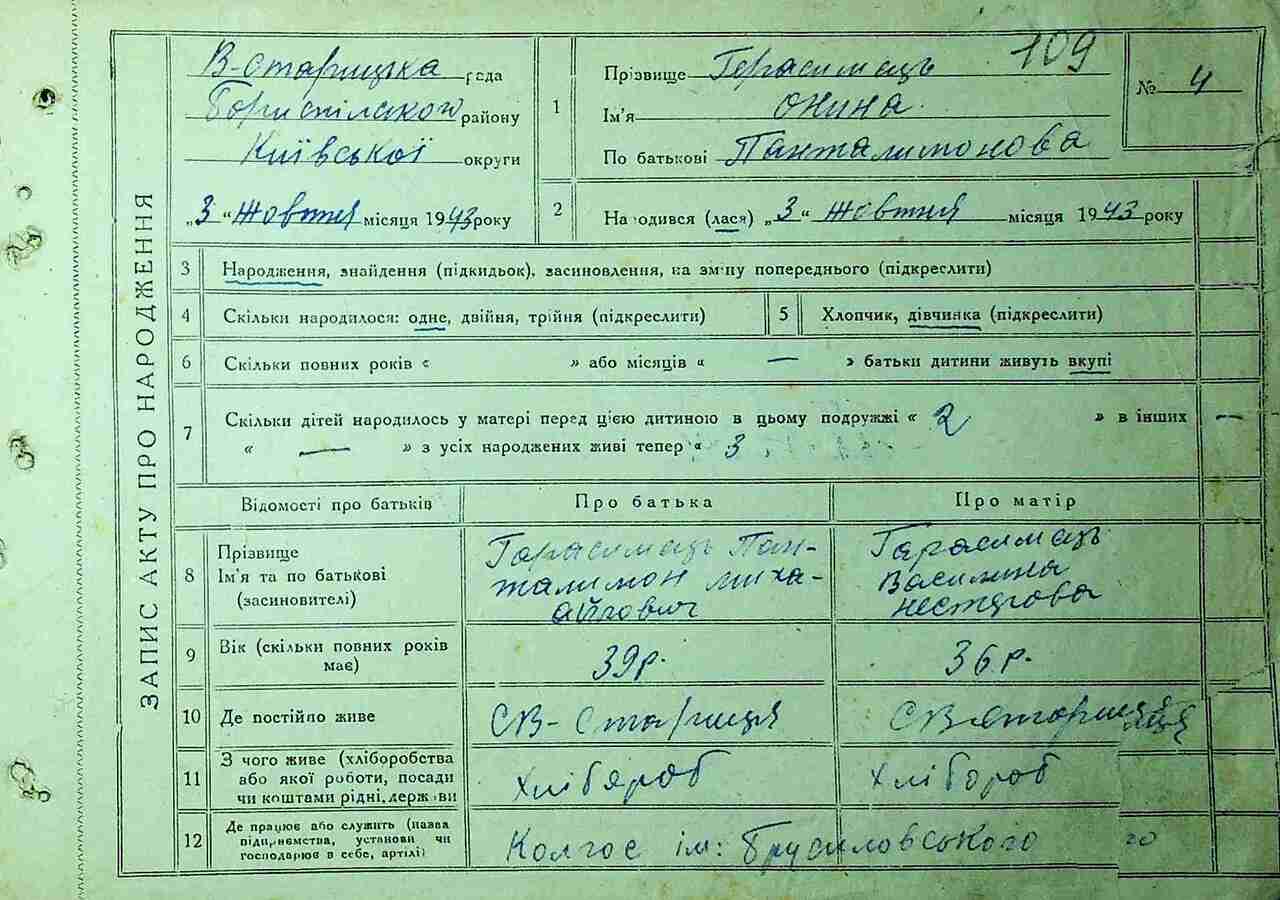 ЗАПИС АКТУ ПРО НАРОДЖЕННЯ
109
В-Старицька рада
Бориспілского району
Київської округи
„3“ Жовтня місяця 1943 року
1
Прізвище Герасимець
Ім'я
По батькові Панталимонова
№ 4
2
На одився (лася) „3“ Жовтня місяця 1943 року
3 Народження, знайдення (підкидьок), засиновлення, на зміну попереднього (підкреслити)
4 Скільки народилося: одне, двійня, трійня (підкреслити)
5 Хлопчик, дівчинка (підкреслити)
6 Скільки повних років « » або місяців « — » батьки дитини живуть вкупі
7 Скільки дітей народилось у матері перед цією дитиною в цьому подружжі « 2 » в інших —
« — » з усіх народжених живі тепер « 3
Відомості про батьків
Про батька
Про матір
8 Прізвище
Ім'я та по батькові
(засиновителі)
Герасимець Пан-
талимон миха-
айлович
Герасимець
Василина
нестерова
9 Вік (скільки повних років
має)
39 р.
36 р.
10 Де постійно живе
СВ-Стариця
СВ Стариця
11 З чого живе (хліборобства
або якої роботи, посади
чи коштами рідні, держ ви
Хлібяроб
Хлібороб
12 Де працює або служить (назва
підприємства, установи чи
господарює в себе, артілі)
Колгос ім: Брусиловського
го